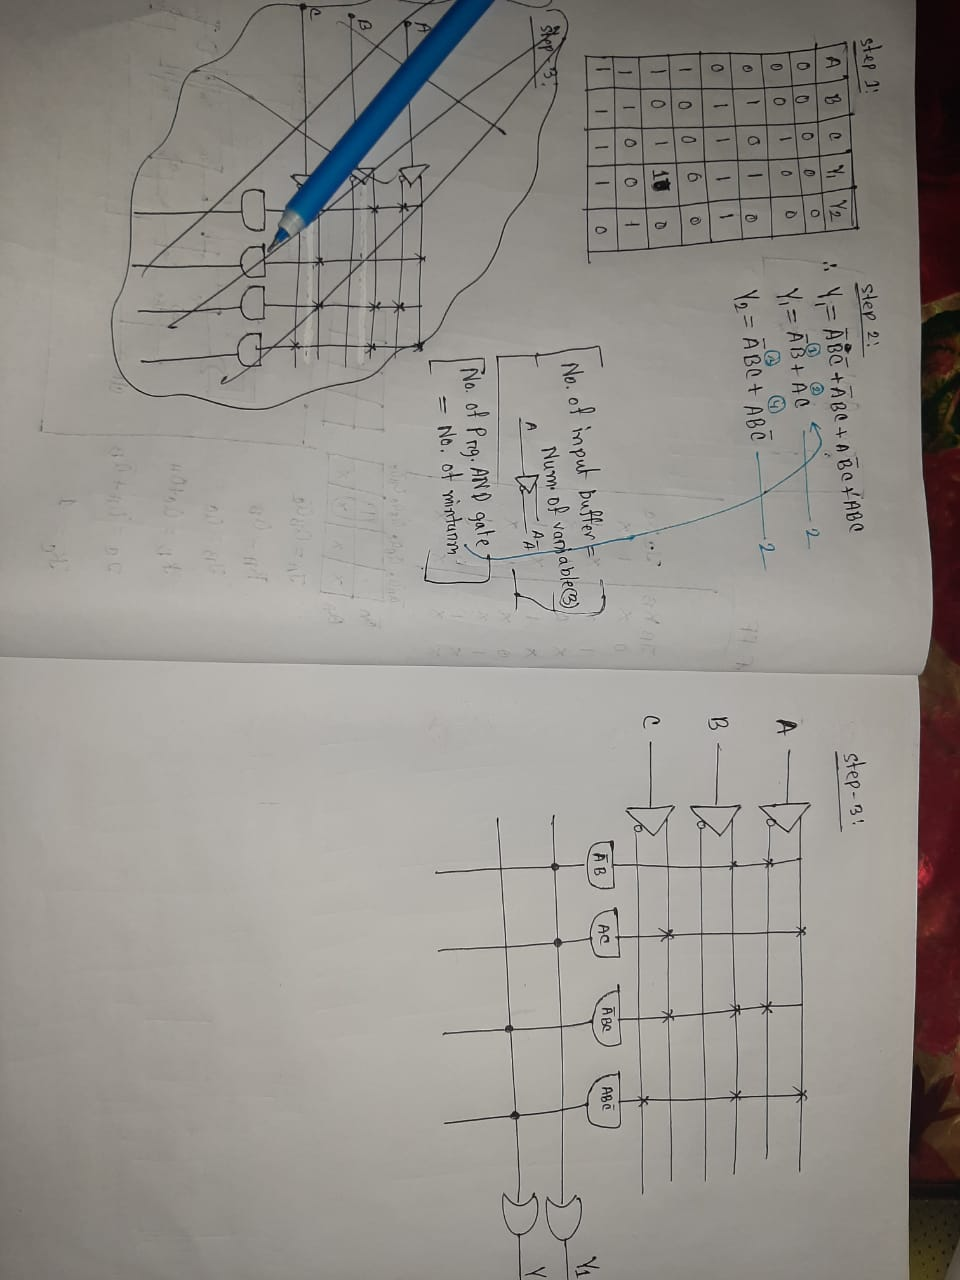 Step 1:
A B C Y₁ Y₂
0 0 0 0 0
0 0 1 0 0
0 1 0 1 0
0 1 1 1 1
1 0 0 0 0
1 0 1 1 0
1 1 0 0 1
1 1 1 1 0
Step 2:
∴ Y₁ = A̅BC̅ + A̅BC + AB̅C + ABC
① ②
Y₁ = A̅B + AC 2
③ ④
Y₂ = A̅BC + ABC̅ 2
No. of input buffer =
Num. of variable ③
A A A̅
No. of Prog. AND gate
= No. of minterm
Step-3:
A
B
C
Step-3:
A
B
C
A̅B AC A̅BC ABC̅
Y1
Y